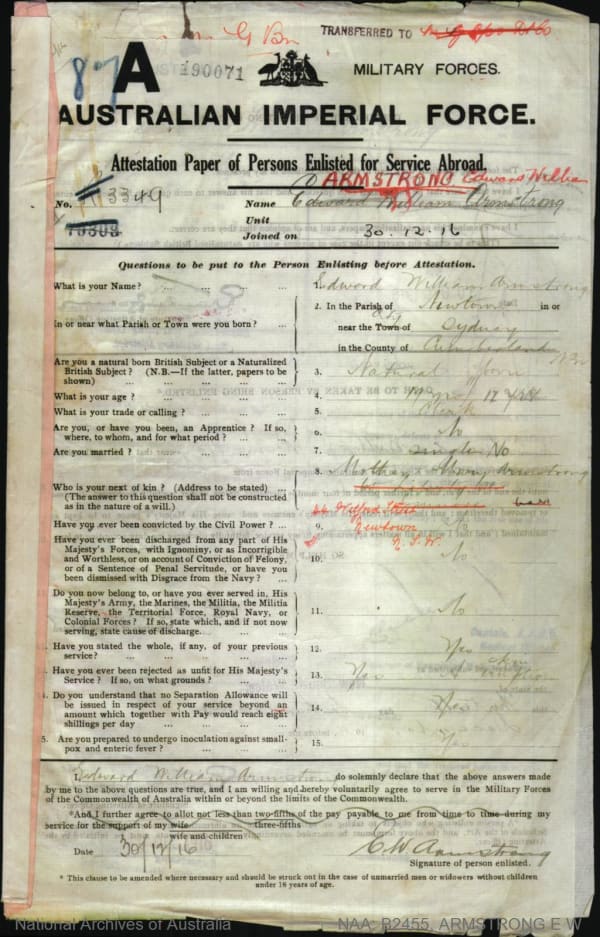 TRANSFERRED TO
A
190071
MILITARY FORCES.
87
AUSTRALIAN IMPERIAL FORCE.
Attestation Paper of Persons Enlisted for Service Abroad.
ARMSTRONG Edward William
No. 3349
Name Edward William Armstrong
Unit
Joined on 30.12.16
Questions to be put to the Person Enlisting before Attestation.
What is your Name? ... ... ... ... 1. Edward William Armstrong
2. In the Parish of Newtown in or
In or near what Parish or Town were you born? ... near the Town of Sydney
in the County of Cumberland
Are you a natural born British Subject or a Naturalized
British Subject? (N.B.—If the latter, papers to be 3. Natural Born
shown) ... ... ... ... ...
What is your age? ... ... ... ... 4.
What is your trade or calling? ... ... ... 5. Clerk
Are you, or have you been, an Apprentice? If so,
where, to whom, and for what period? ... ... 6. No
Are you married? ... ... ... ... 7. Single No
8. Mother Armstrong
Who is your next of kin? (Address to be stated) ...
(The answer to this question shall not be constructed
as in the nature of a will.) Wilford Street
Have you ever been convicted by the Civil Power? ... 9. Newtown No
N.S.W.
Have you ever been discharged from any part of His
Majesty's Forces, with Ignominy, or as Incorrigible
and Worthless, or on account of Conviction of Felony, 10. No
or of a Sentence of Penal Servitude, or have you
been dismissed with Disgrace from the Navy? ...
Do you now belong to, or have you ever served in, His
Majesty's Army, the Marines, the Militia, the Militia
Reserve, the Territorial Force, Royal Navy, or 11. No
Colonial Forces? If so, state which, and if not now
serving, state cause of discharge.
Have you stated the whole, if any, of your previous 12. Yes
service? ... ... ... ...
Have you ever been rejected as unfit for His Majesty's
Service? If so, on what grounds? ... ... 13. Yes
Do you understand that no Separation Allowance will
be issued in respect of your service beyond an 14. Yes
amount which together with Pay would reach eight
shillings per day ... ... ...
5. Are you prepared to undergo inoculation against small-
pox and enteric fever? ... ... ... 15. Yes
I, Edward William Armstrong do solemnly declare that the above answers made
by me to the above questions are true, and I am willing and hereby voluntarily agree to serve in the Military Forces
of the Commonwealth of Australia within or beyond the limits of the Commonwealth.
*And I further agree to allot not less than two-fifths of the pay payable to me from time to time during my
three-fifths
service for the support of my wife
wife and children
Date 30/12/16
E W Armstrong
Signature of person enlisted.
* This clause to be amended where necessary and should be struck out in the case of unmarried men or widowers without children
under 18 years of age.
National Archives of Australia
NAA: B2455, ARMSTRONG E W